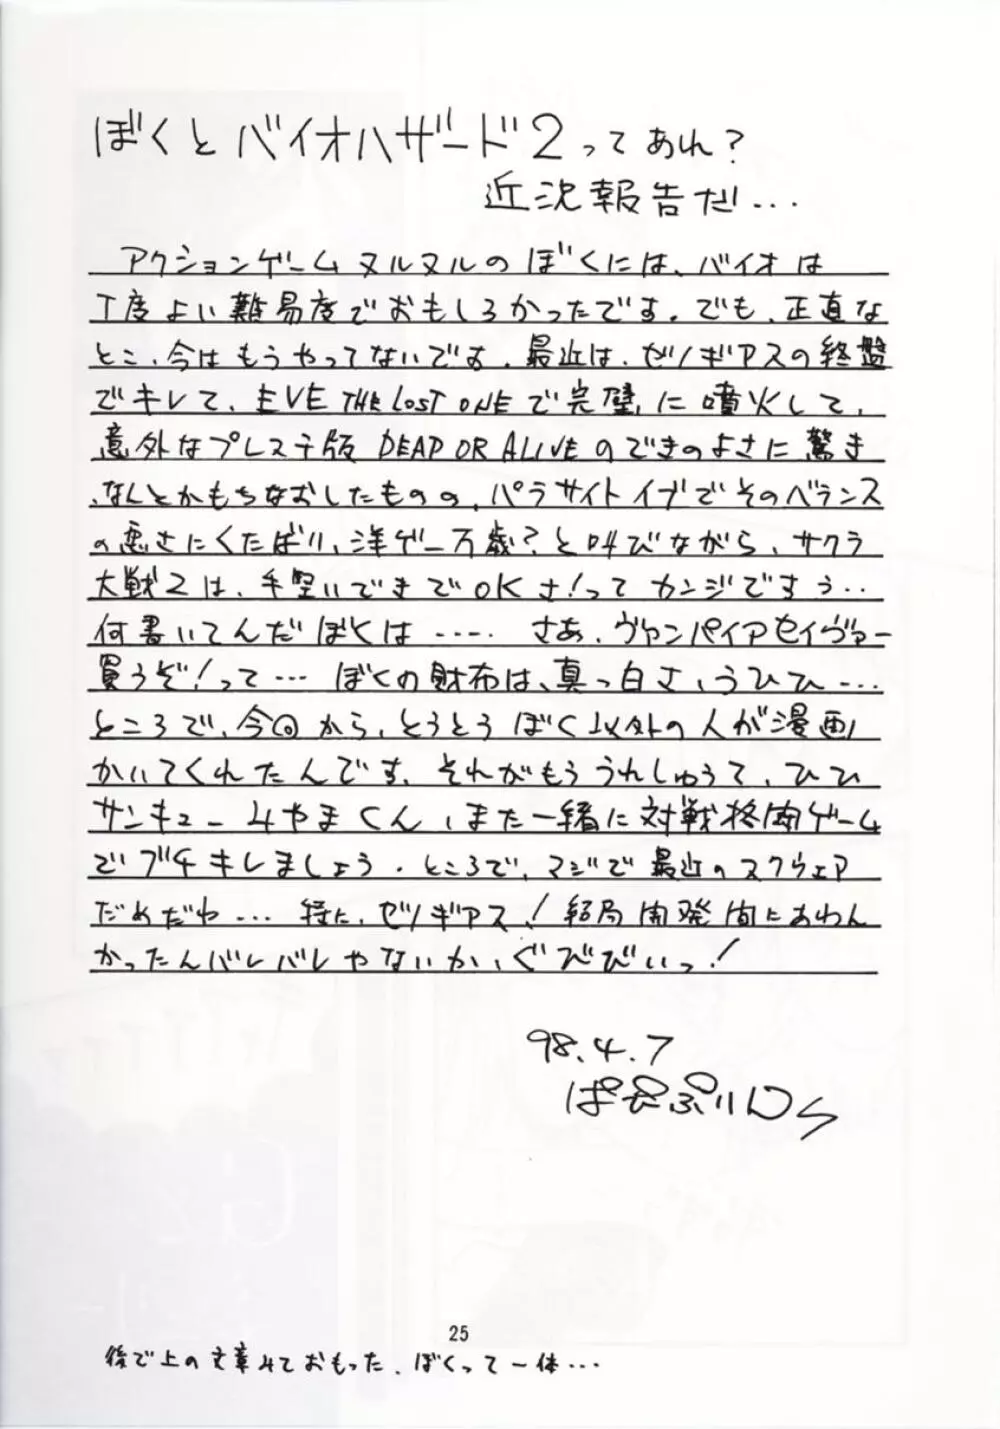 ぼくとバイオハザード2ってあれ?
近況報告だ...
アクションゲームヌルヌルのぼくには、バイオは
丁度よい難易度でおもしろかったです。でも、正直な
とこ、今はもうやってないです。最近は、ゼノギアスの終盤
でキレて、EVE THE LOST ONEで完璧に噴火して、
意外なプレステ版 DEAD OR ALIVEのできのよさに驚き
、なんとかもちなおしたものの、パラサイトイブでそのベランス
の悪さにくたばり、洋ゲー万歳?と叫びながら、サクラ
大戦2は、手堅いできでOKさ!ってカンジですぅ..
何書いてんだぼくは ..... さあ、ヴァンパイアセイヴァー
買うぞ!って... ぼくの財布は、真っ白さ、うひひ...
ところで、今回から、とうとうぼく以外の人が漫画
かいてくれたんです。それがもううれしゅうて、ひひ
サンキューみやまくん、また一緒に対戦格闘ゲーム
でブチキレましょう。ところで、マジで最近のスクウェア
だめだわ... 特に、ゼノギアス!結局開発間にあわん
かったんバレバレやないか、ぐびびいっ!
98.4.7
25
後で上の文章みておもった、ぼくって一体...